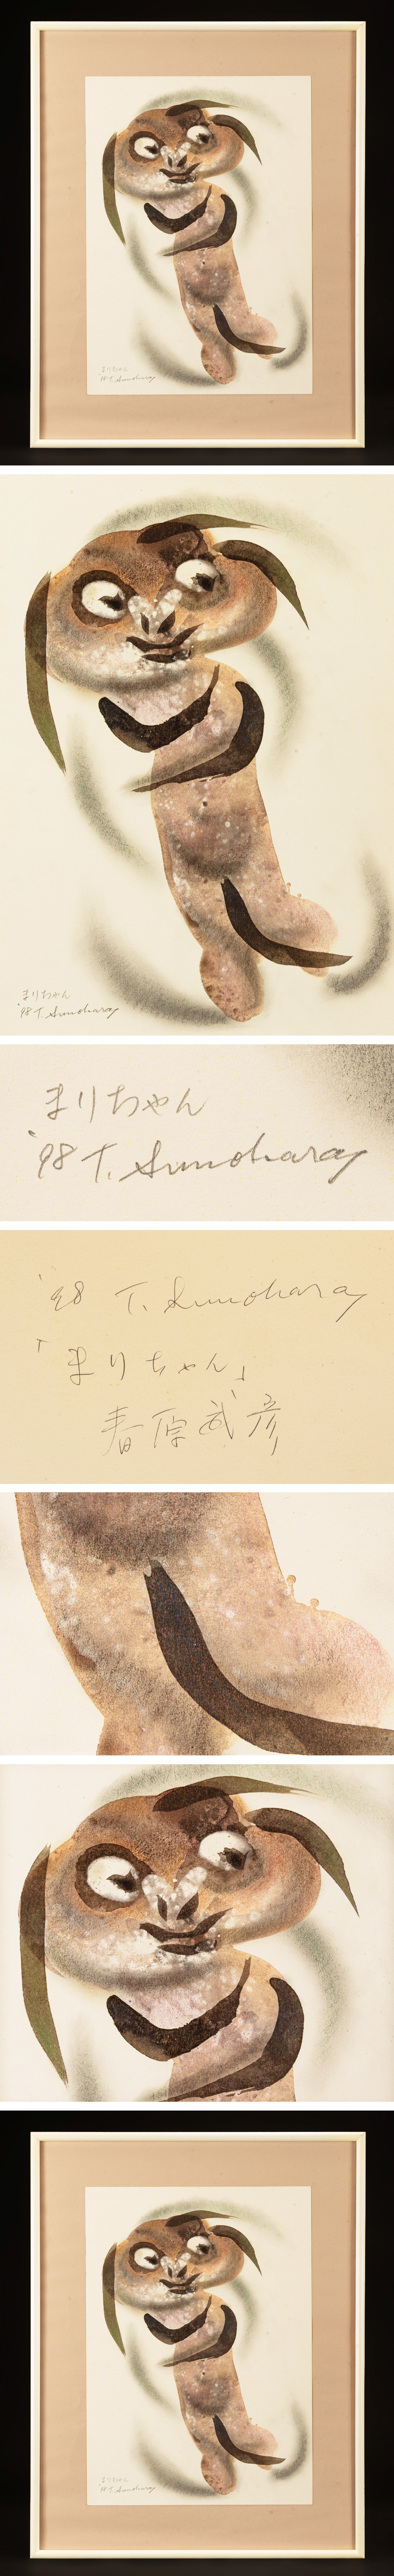 まりちゃん
'98 T. Sunohara
まりちゃん
'98 T. Sunohara
まりちゃん
'98 T. Sunohara
'98 T. Sunohara
「まりちゃん」
春原武彦
まりちゃん
'98 T. Sunohara